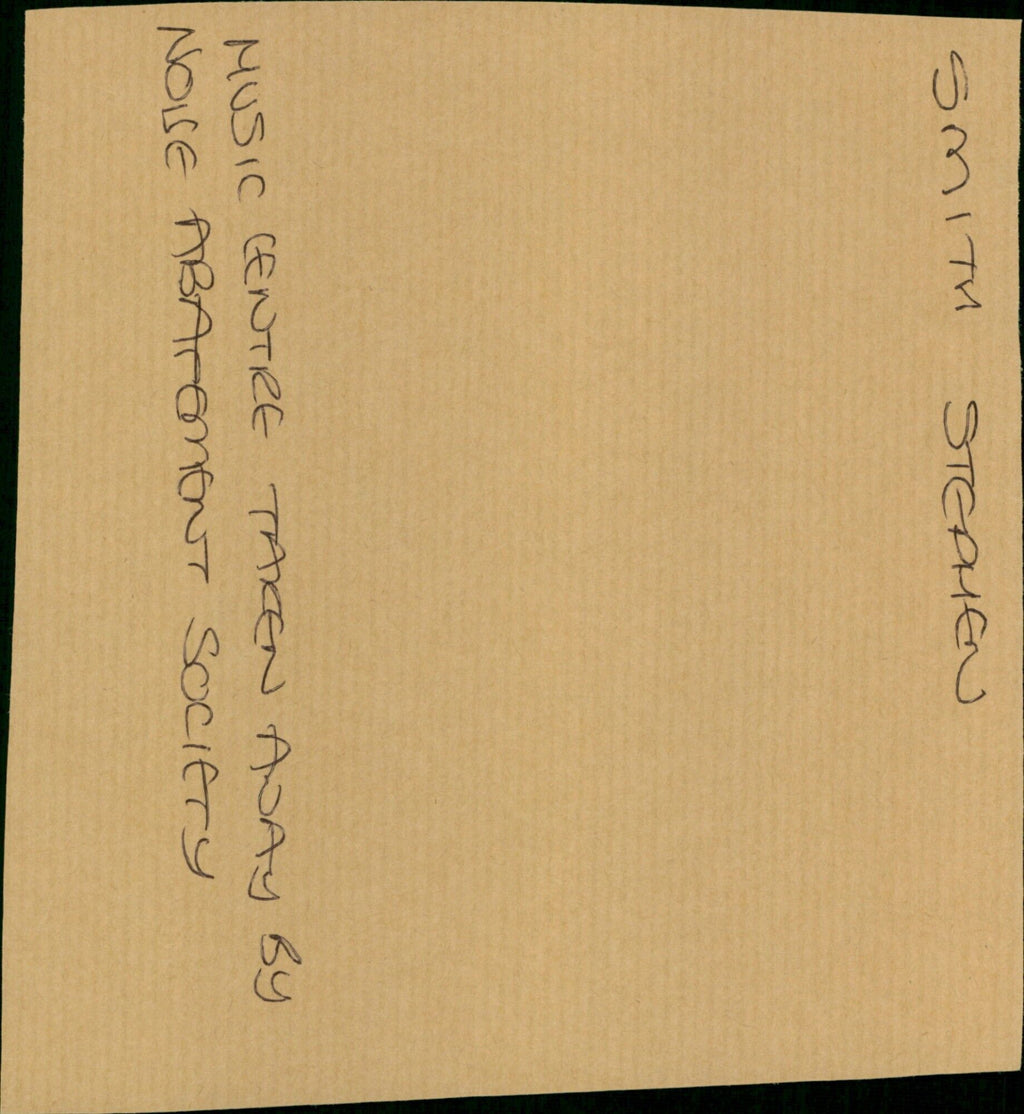 SMITH STEPHEN
MUSIC CENTRE TAKEN AWAY BY
NOISE ABATEMENT SOCIETY